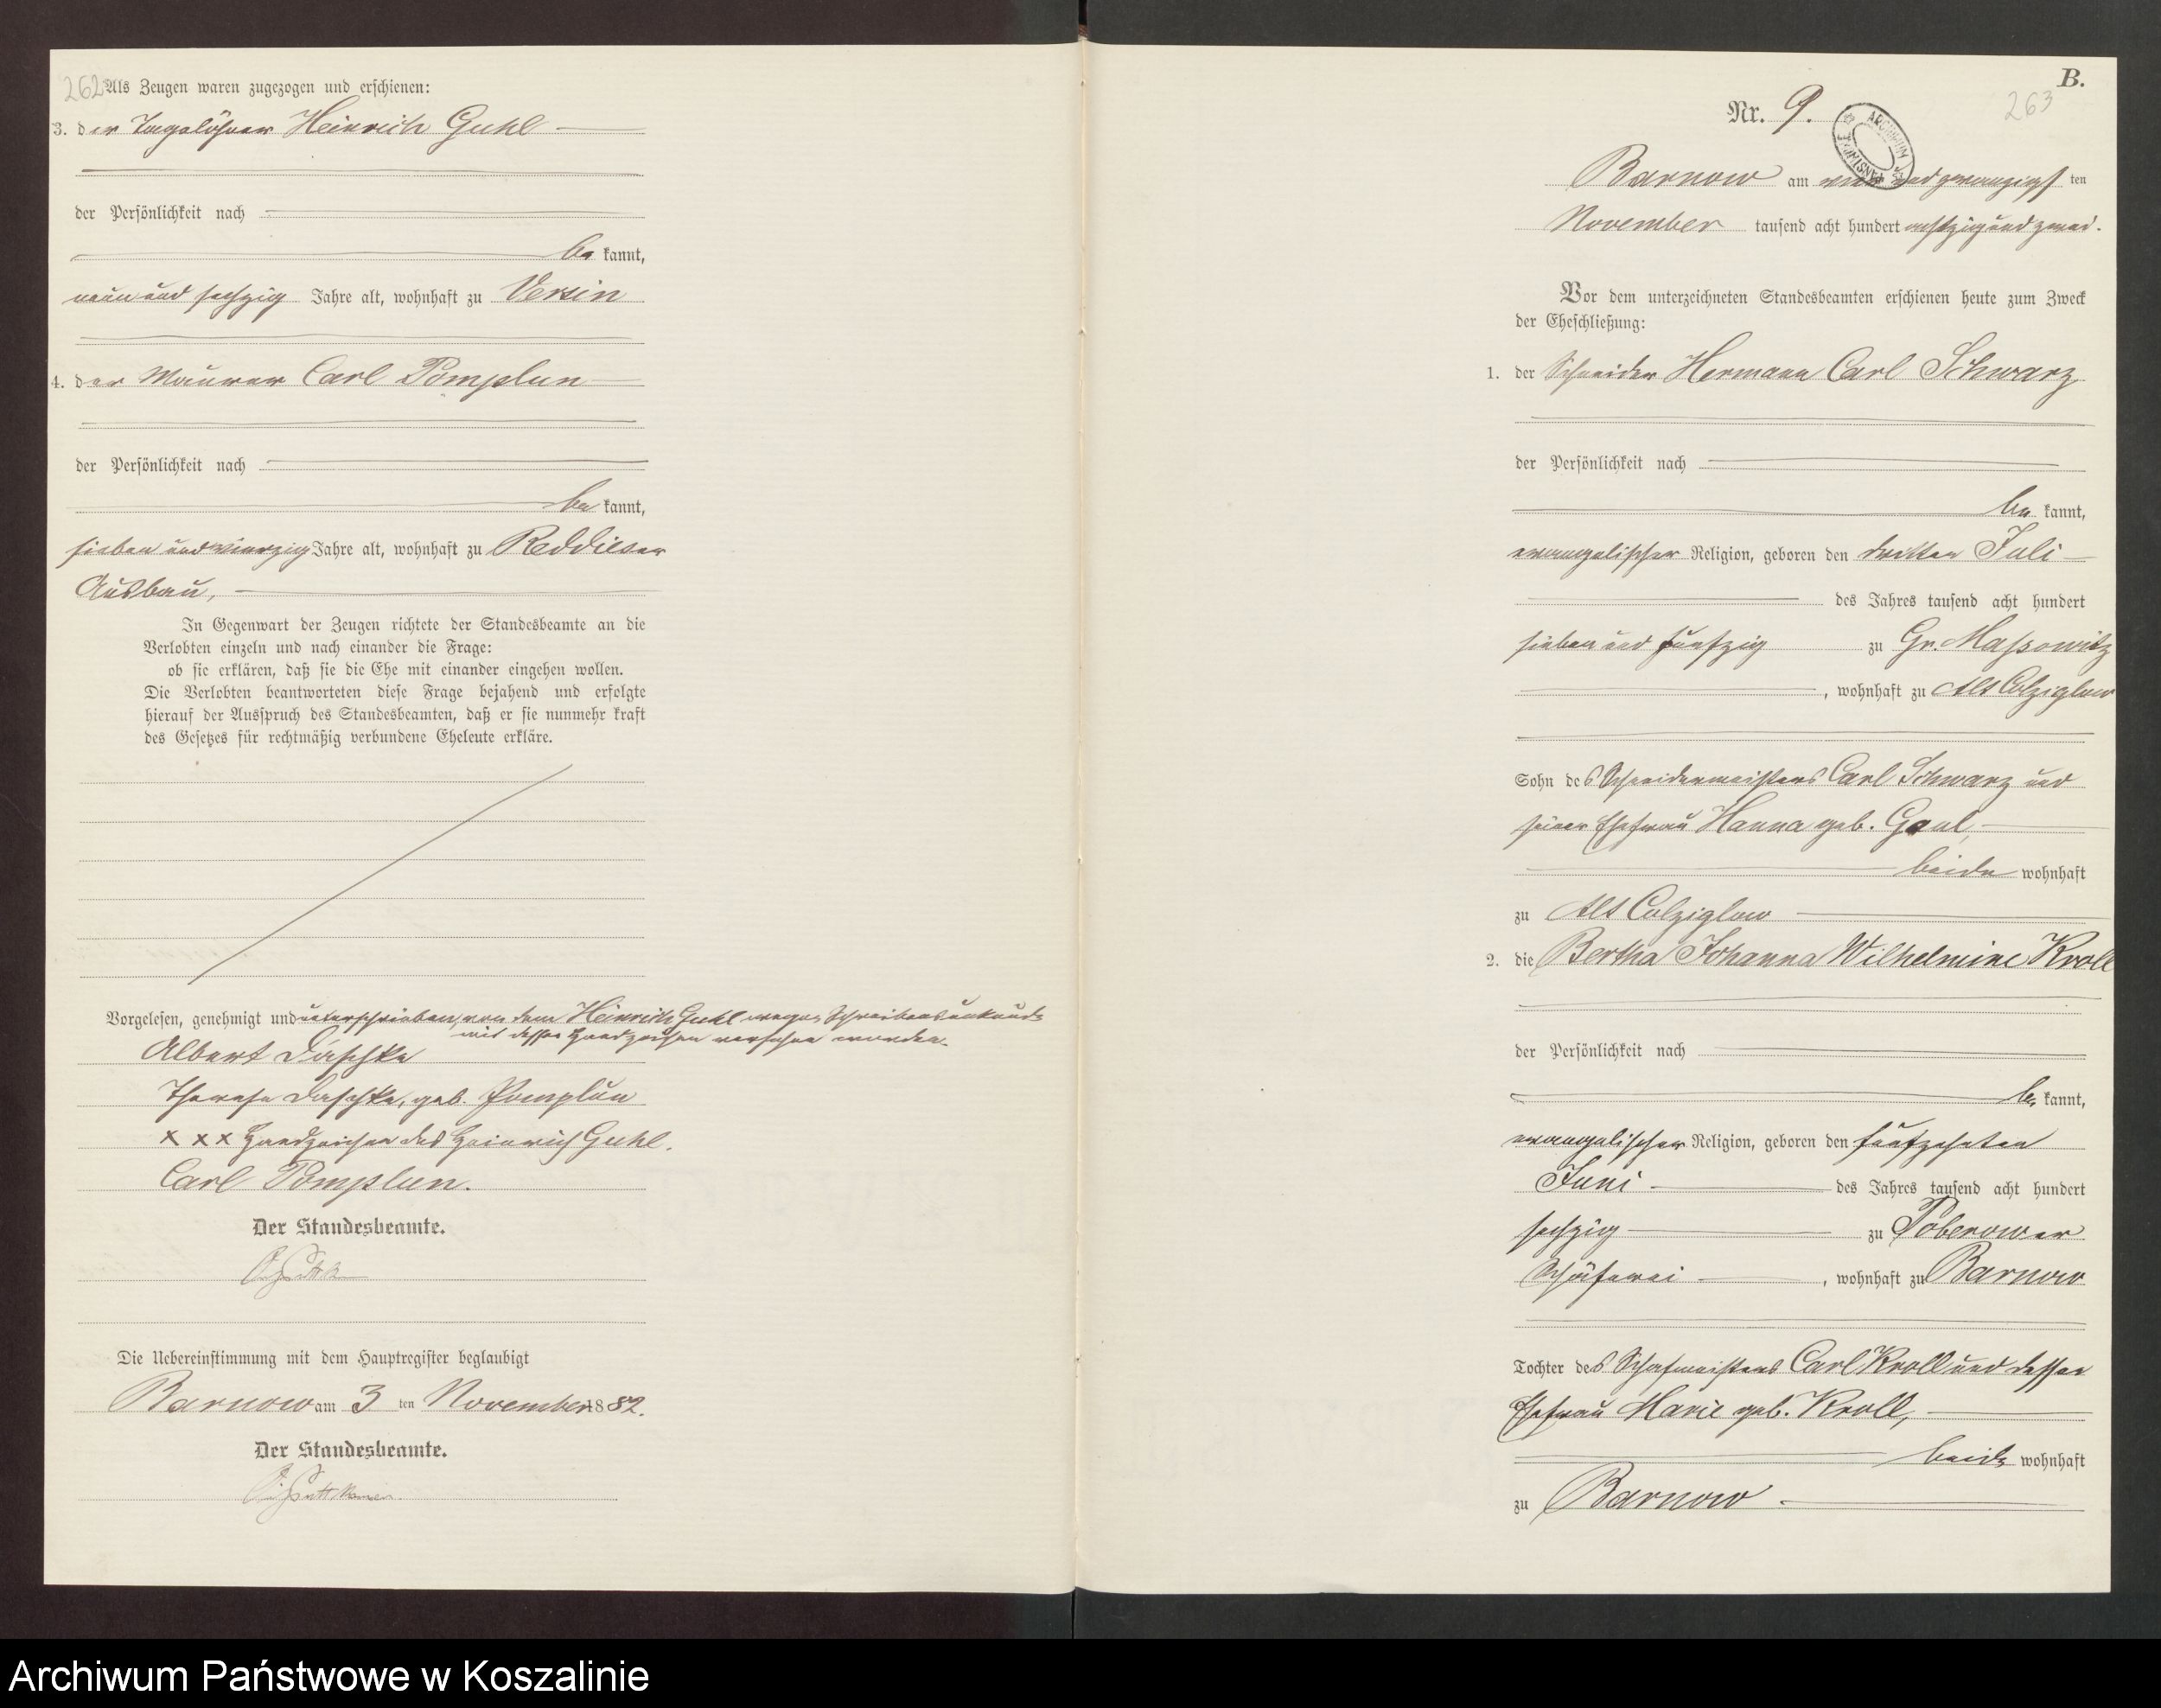 262 Als Zeugen waren zugezogen und erschienen:
3. der Tagelöhner Heinrich Guhl
der Persönlichkeit nach
be kannt,
neun und sechzig Jahre alt, wohnhaft zu Versin
4. der Maurer Carl Pomplun
der Persönlichkeit nach
be kannt,
sieben und vierzig Jahre alt, wohnhaft zu Reddieser
Ausbau,
In Gegenwart der Zeugen richtete der Standesbeamte an die
Verlobten einzeln und nach einander die Frage:
ob sie erklären, daß sie die Ehe mit einander eingehen wollen.
Die Verlobten beantworteten diese Frage bejahend und erfolgte
hierauf der Ausspruch des Standesbeamten, daß er sie nunmehr kraft
des Gesetzes für rechtmäßig verbundene Eheleute erkläre.
Vorgelesen, genehmigt und unterschrieben, von dem Heinrich Guhl wegen Schreibensunkunde
mit dessen Handzeichen versehen worden.
Albert Daschke
Therese Daschke, geb. Pomplun
x x x Handzeichen des Heinrich Guhl.
Carl Pomplun.
Der Standesbeamte.
Die Uebereinstimmung mit dem Hauptregister beglaubigt
Barnow am 3 ten November 1882.
Der Standesbeamte.
B.
263
Nr. 9.
ARCHIWUM
Barnow am und zwanzigsten
November tausend acht hundert achtzig und zwei.
Vor dem unterzeichneten Standesbeamten erschienen heute zum Zweck
der Eheschließung:
1. der Schneider Hermann Carl Schwarz
der Persönlichkeit nach
be kannt,
evangelischer Religion, geboren den dritten Juli
des Jahres tausend acht hundert
sieben und fünfzig zu Gr. Massowitz
, wohnhaft zu Alt Colziglow
Sohn des Schneidermeisters Carl Schwarz und
seiner Ehefrau Hanna geb. Gaul,
beide wohnhaft
zu Alt Colziglow
2. die Bertha Johanna Wilhelmine Kroll
der Persönlichkeit nach
be kannt,
evangelischer Religion, geboren den fünfzehnten
Juni des Jahres tausend acht hundert
sechzig zu Poberower
Schäferei , wohnhaft zu Barnow
Tochter des Schafmeisters Carl Kroll und dessen
Ehefrau Marie geb. Kroll,
beide wohnhaft
zu Barnow.
Archiwum Państwowe w Koszalinie